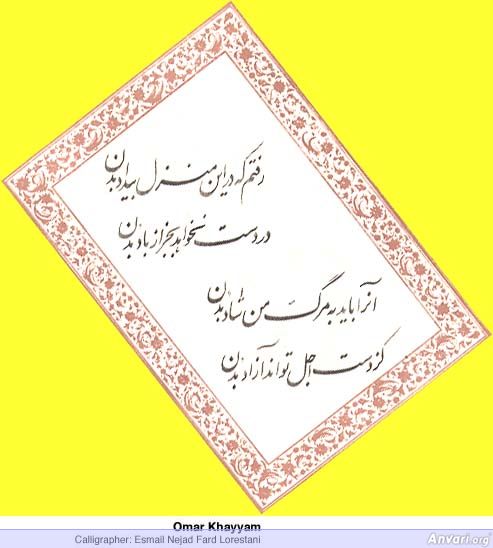 رفتم که در این منزل بیداد بدن
در دست نخواهد بجز از باد بدن
آنرا باید به مرگ من شاد بدن
کز دست اجل تواند آزاد بدن
Omar Khayyam
Calligrapher: Esmail Nejad Fard Lorestani
Anvari.org